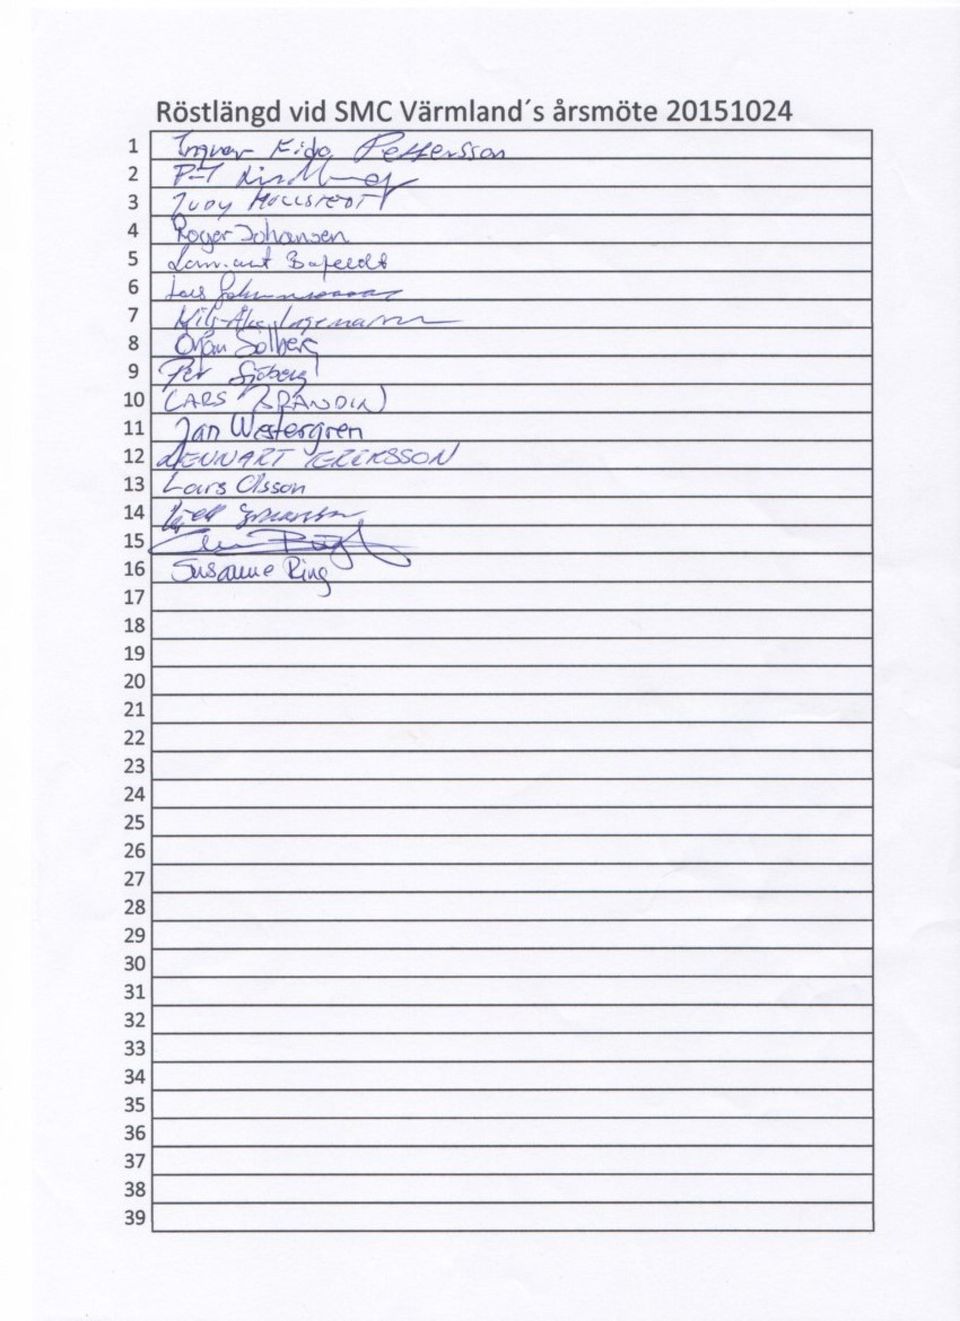 Röstlängd vid SMC Värmland´s årsmöte 20151024
1 Ingvar Pettersson
2 P-T
3 Judy
4 Roger Johansen
5
6 Lars
7 Nils-Åke Lagemann
8 Örjan Solberg
9 Per Sjöberg
10 LARS BRANDIN
11 Jan Westergren
12 LENNART ERIKSSON
13 Lars Olsson
14 Kjell
15
16 Susanne Ring
17
18
19
20
21
22
23
24
25
26
27
28
29
30
31
32
33
34
35
36
37
38
39